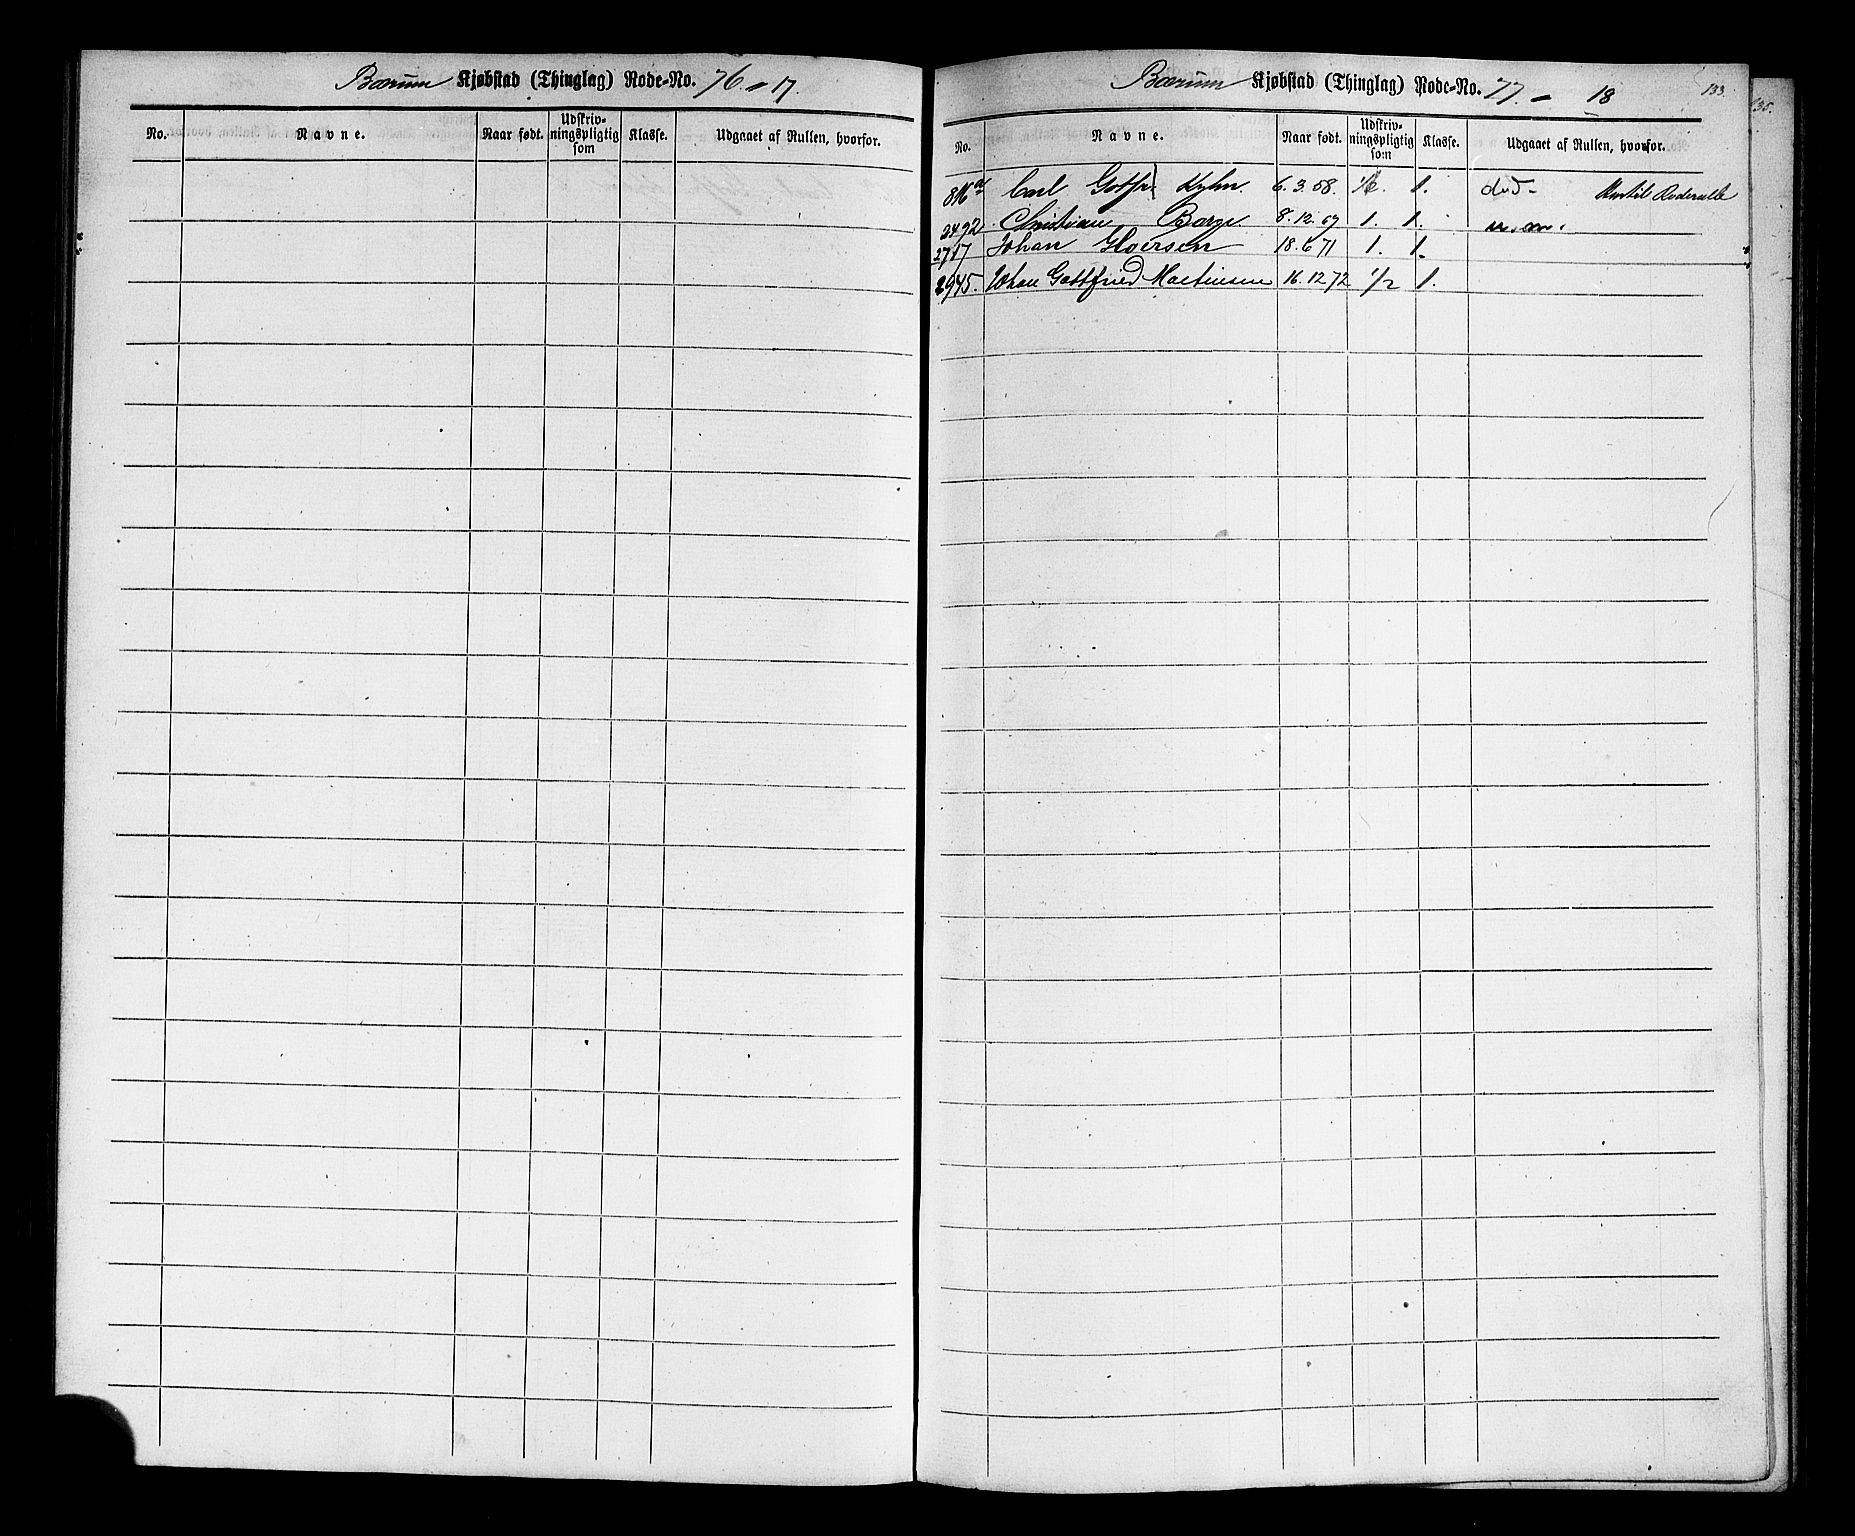 Bærum Kjøbstad (Thinglag) Rode-No. 76. - 17.
No. Navne. Naar født. Udskriv-ningspligtig som Klasse. Udgaaet af Rullen, hvorfor.
Bærum Kjøbstad (Thinglag) Rode-No. 77. - 18
133.
135.
No. Navne. Naar født. Udskriv-ningspligtig som Klasse. Udgaaet af Rullen, hvorfor.
Carl Gotfr. Kyhn 6.3.58. 1/2. 1. død.
2492 Christian Borge 8.12.69 1. 1.
2717 Johan Iversen 18.6.71 1. 1.
2945. Johan Gottfried Martinsen 16.12.72 1/2 1.